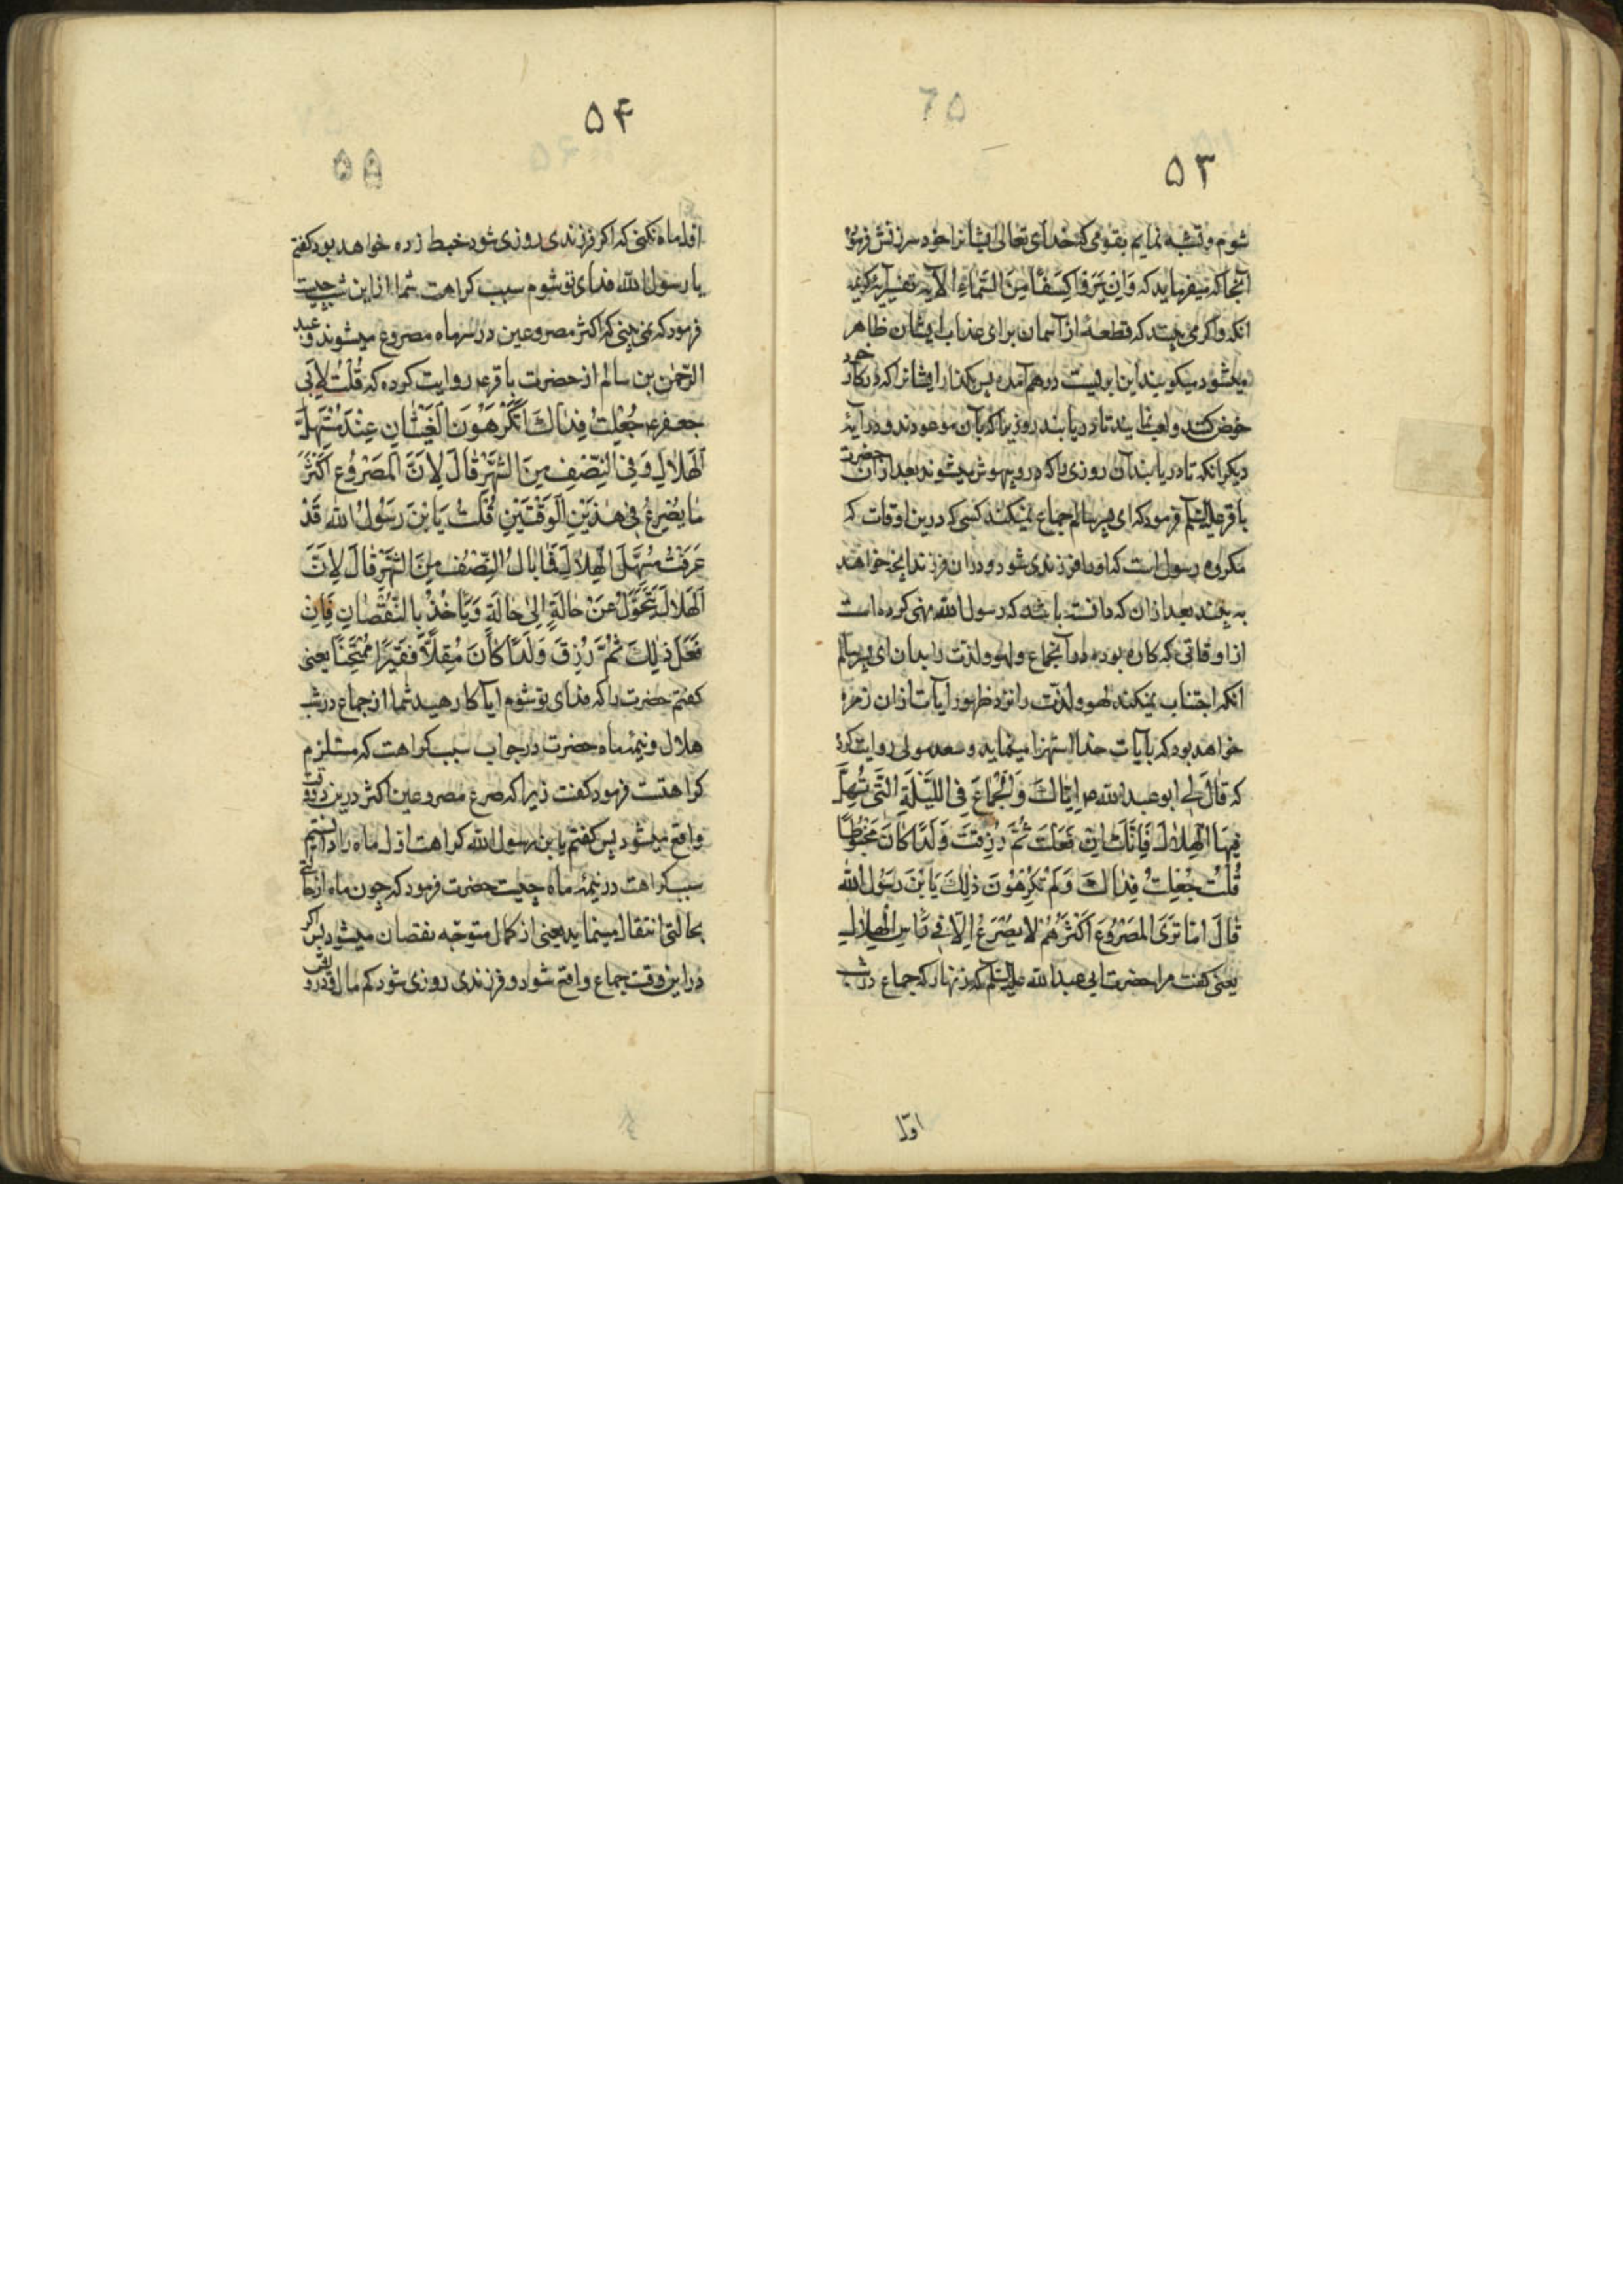 ۵۳
شوم و تشبه نمایم بقومی که خدای تعالی ایشانرا خود سرزنش فرموده
آنجا که میفرماید که وَاِنْ یَرَوْا کِسْفًا مِنَ السَّمَاءِ الآیه تفسیر آیه کریمه
انکه و اکر می بینند که قطعهٔ از آسمان برای عذاب ایشان ظاهر
میشود میکویند این ابریست درهم آمده پس بکذار ایشانرا که در کار خود
خوض کنند و لعب نمایند تا دریابند روزیرا که بآن موعودند و در آیهٔ
دیکر انکه تا دریابند آن روزی را که در و بیهوش میشوند بعد ازان حضرت
باقر علیه السلم فرمود که ای پسر سالم جماع نمیکند کسی که درین اوقات که
مکروه رسول است که او را فرزندی شود و دران فرزند آنچه خواهد
به بیند بعد ازان که دانسته باشد که رسول الله نهی کرده است
از اوقاتی که کاره بوده در آنجماع و لهو و لذت را بدان ای پسر سالم
انکه اجتناب نمیکند لهو و لذت را نزد ظهور آیات ازان زمره
خواهد بود که بآیات خدا استهزا مینماید و سعد مولی روایت کرده
که قَالَ لِی ابو عبد الله ص اِیَّاكَ وَ الْجِمَاعَ فِی اللَّیْلَةِ الَّتِی یُهِلُّ
فِیهَا الْهِلَالُ فَاِنَّكَ اِنْ فَعَلْتَ ثُمَّ رُزِقْتَ وَلَدًا کَانَ مَخْبُوطًا
قُلْتُ جُعِلْتُ فِدَاكَ وَلِمَ تَکْرَهُونَ ذٰلِكَ یَابْنَ رَسُولِ اللهِ
قَالَ اَمَا تَرَی الْمَصْرُوعَ اَکْثَرُهُمْ لَا یُصْرَعُ اِلَّا فِی رَأْسِ الْهِلَالِ
یعنی کفت مرا حضرت ابی عبد الله علیه السلم که زنهار که جماع در شب
اوّل
۵۴
۵۵
اوّل ماه نکنی که اکر فرزندی روزی شود خبط زده خواهد بود کفتم
یا رسول الله فدای تو شوم سبب کراهت شما از این شب چیست
فرمود که نمی بینی که اکثر مصروعین در سرماه مصروع میشوند و عبد
الرحمن بن سالم از حضرت باقر ع روایت کرده که قُلْتُ لِاَبِی
جعفر ع جُعِلْتُ فِدَاكَ اَتَکْرَهُونَ الْغَشَیَانِ عِنْدَ مُسْتَهَلِّ
الْهِلَالِ وَ فِی النِّصْفِ مِنَ الشَّهْرِ قَالَ لِاَنَّ الْمَصْرُوعَ اَکْثَرُ
مَا یُصْرَعُ فِی هٰذَیْنِ الْوَقْتَیْنِ قُلْتُ یَابْنَ رَسُولِ اللهِ قَدْ
عَرَفْتُ مُسْتَهَلَّ الْهِلَالِ فَمَا بَالُ النِّصْفِ مِنَ الشَّهْرِ قَالَ لِاَنَّ
الْهِلَالَ یَتَحَوَّلُ عَنْ حَالَةٍ اِلٰی حَالَةٍ وَ یَاْخُذُ بِالنُّقْصَانِ فَاِنْ
فَعَلَ ذٰلِكَ ثُمَّ رُزِقَ وَلَدًا کَانَ مُقِلًّا فَقِیرًا مُمْتَحَنًا یعنی
کفتم حضرت را که فدای تو شوم ایا کارهید شما از جماع در شب
هلال و نیمهٔ ماه حضرت در جواب سبب کراهت که مستلزم
کراهتست فرمود کفت زیرا که صرع مصروعین اکثر درین دو وقت
واقع میشود پس کفتم یابن رسول الله کراهت اوّل ماه را دانستیم
سبب کراهت در نیمهٔ ماه چیست حضرت فرمود که چون ماه از حالتی
بحالتی انتقال مینماید یعنی از کمال متوجّه نقصان میشود پس اکر
در این وقت جماع واقع شود و فرزندی روزی شود کم مال و قدر و